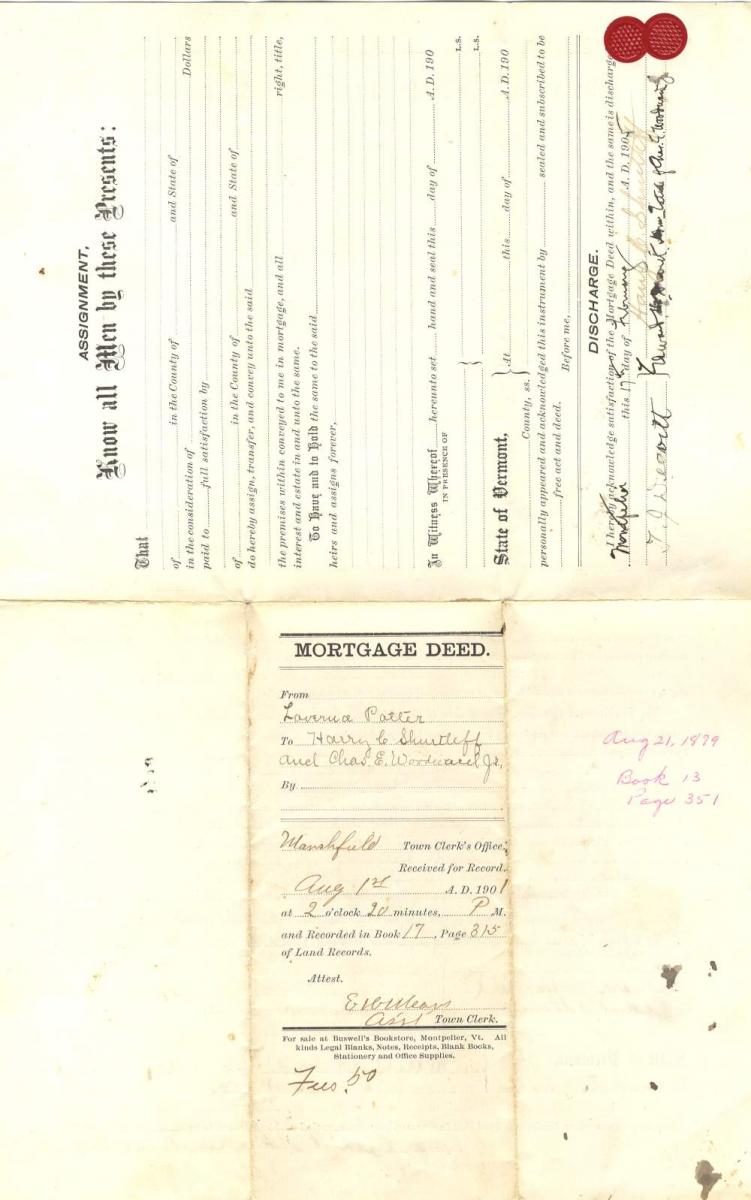 ASSIGNMENT.
Know all Men by these Presents:
That
of in the County of and State of
in the consideration of Dollars
paid to full satisfaction by
of in the County of and State of
do hereby assign, transfer, and convey unto the said
the premises within conveyed to me in mortgage, and all right, title,
interest and estate in and unto the same.
To Have and to Hold the same to the said
heirs and assigns forever,
In Witness Whereof hereunto set hand and seal this day of A. D. 190
IN PRESENCE OF
L.S.
L.S.
State of Vermont,
County, ss. } At this day of A. D. 190
personally appeared and acknowledged this instrument by sealed and subscribed to be
free act and deed.
Before me,
DISCHARGE.
I hereby acknowledge satisfaction of the Mortgage Deed within, and the same is discharged
Montpelier this 17th day of February A. D. 1905
Harry C Shurtleff
T. J. Deavitt
Edward of Chas. E. Woodward Jr
MORTGAGE DEED.
From
Laverna Potter
To Harry C Shurtleff
and Chas. E. Woodward, Jr.
By
Marshfield Town Clerk's Office,
Received for Record.
Aug 1st A. D. 1901
at 2 o'clock 20 minutes, P M.
and Recorded in Book 17, Page 315
of Land Records.
Attest.
Asst Town Clerk.
For sale at Buswell's Bookstore, Montpelier, Vt. All
kinds Legal Blanks, Notes, Receipts, Blank Books,
Stationery and Office Supplies.
Fees .50
Aug 21, 1879
Book 13
Page 351